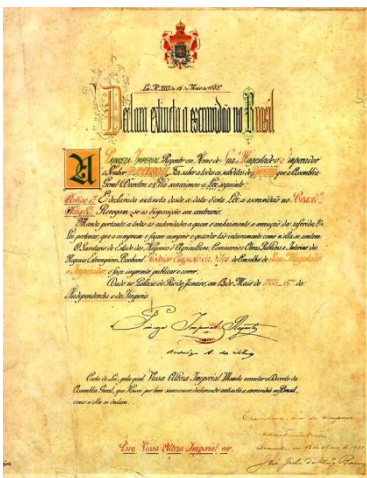 Lei N. de 13 de Maio de 1888
Declara extincta a escravidão no Brasil
A PRINCEZA IMPERIAL Regente em Nome de Sua Magestade o Imperador
o Senhor D. PEDRO II, Faz saber a todos os subditos do IMPERIO que a Assembléa
Geral Decretou e Ella sanccionou a Lei seguinte:
Artigo 1º É declarada extincta desde a data d'esta Lei a escravidão no Brazil.
Artigo 2º Revogam-se as disposições em contrario.
Manda portanto a todas as autoridades a quem o conhecimento e execução da referida
Lei pertencer, que a cumpram e façam cumprir e guardar tão inteiramente como n'ella se contem.
O Secretario de Estado dos Negocios d'Agricultura, Commercio e Obras Publicas e Interino dos
Negocios Estrangeiros, Bacharel Rodrigo Augusto da Silva do Conselho de Sua Magestade
o Imperador, o faça imprimir, publicar e correr.
Dado no Palacio do Rio de Janeiro, em 13 de Maio de 1888, 67º da
Independencia e do Imperio.
Princeza Imperial Regente
Rodrigo A. da Silva
Carta de Lei, pela qual Vossa Alteza Imperial Manda executar o Decreto da
Assembléa Geral, que Houve por bem sanccionar declarando extincta a escravidão no Brazil,
como n'ella se declara.
Para Vossa Alteza Imperial ver.